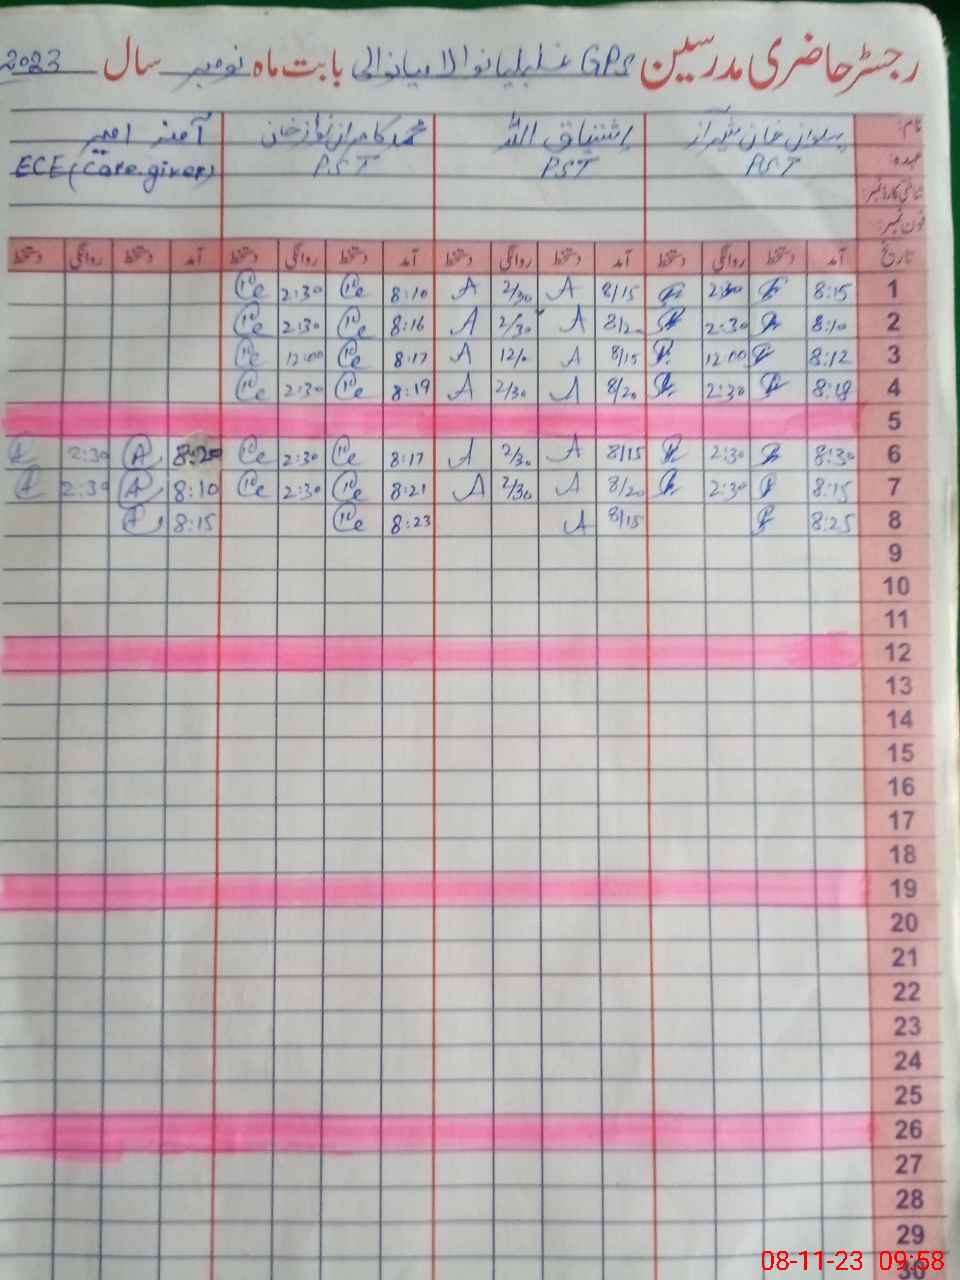 رجسٹر حاضری مدرسین GPS میانوالی بابت ماہ نومبر سال 2023
نام: پہلوان خان شیراز اشتیاق اللہ محمد کامران نواز خان آمنہ امیر
عہدہ: PST PST PST ECE (Care giver)
شناختی کارڈ نمبر:
فون نمبر:
تاریخ آمد دستخط روانگی دستخط آمد دستخط روانگی دستخط آمد دستخط روانگی دستخط آمد دستخط روانگی دستخط
1 8:15 2:30 8/15 A 2/30 A 8:10 2:30
2 8:10 2:30 8/20 A 2/30 A 8:16 2:30
3 8:12 12:00 8/15 A 12/0 A 8:17 12:00
4 8:18 2:30 8/20 A 2/30 A 8:19 2:30
5
6 8:30 2:30 8/15 A 2/30 A 8:17 2:30 8:20 A 2:30
7 8:15 2:30 8/20 A 2/30 A 8:21 2:30 8:10 A 2:30
8 8:25 8/15 A 8:23 8:15
9
10
11
12
13
14
15
16
17
18
19
20
21
22
23
24
25
26
27
28
29
30
08-11-23 09:58